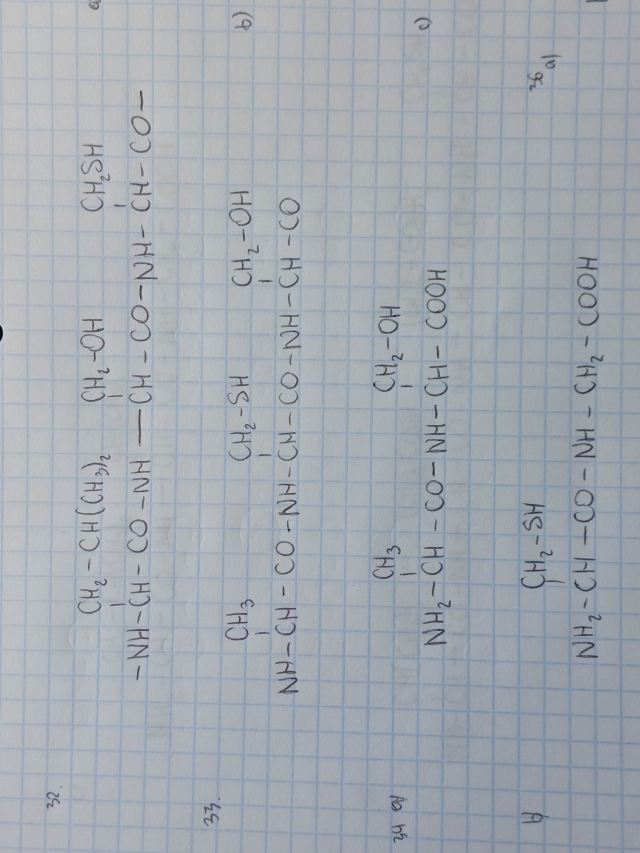 32.
CH₂ – CH(CH₃)₂ CH₂ –OH CH₂SH
– NH – CH – CO – NH — CH – CO – NH – CH – CO –
33.
CH₃ CH₂ – SH CH₂ –OH b)
NH – CH – CO – NH – CH – CO – NH – CH – CO
34 a)
CH₃ CH₂ –OH c)
NH₂ – CH – CO – NH – CH – COOH
b)
CH₂ – SH 36 a)
NH₂ – CH – CO – NH – CH₂ – COOH